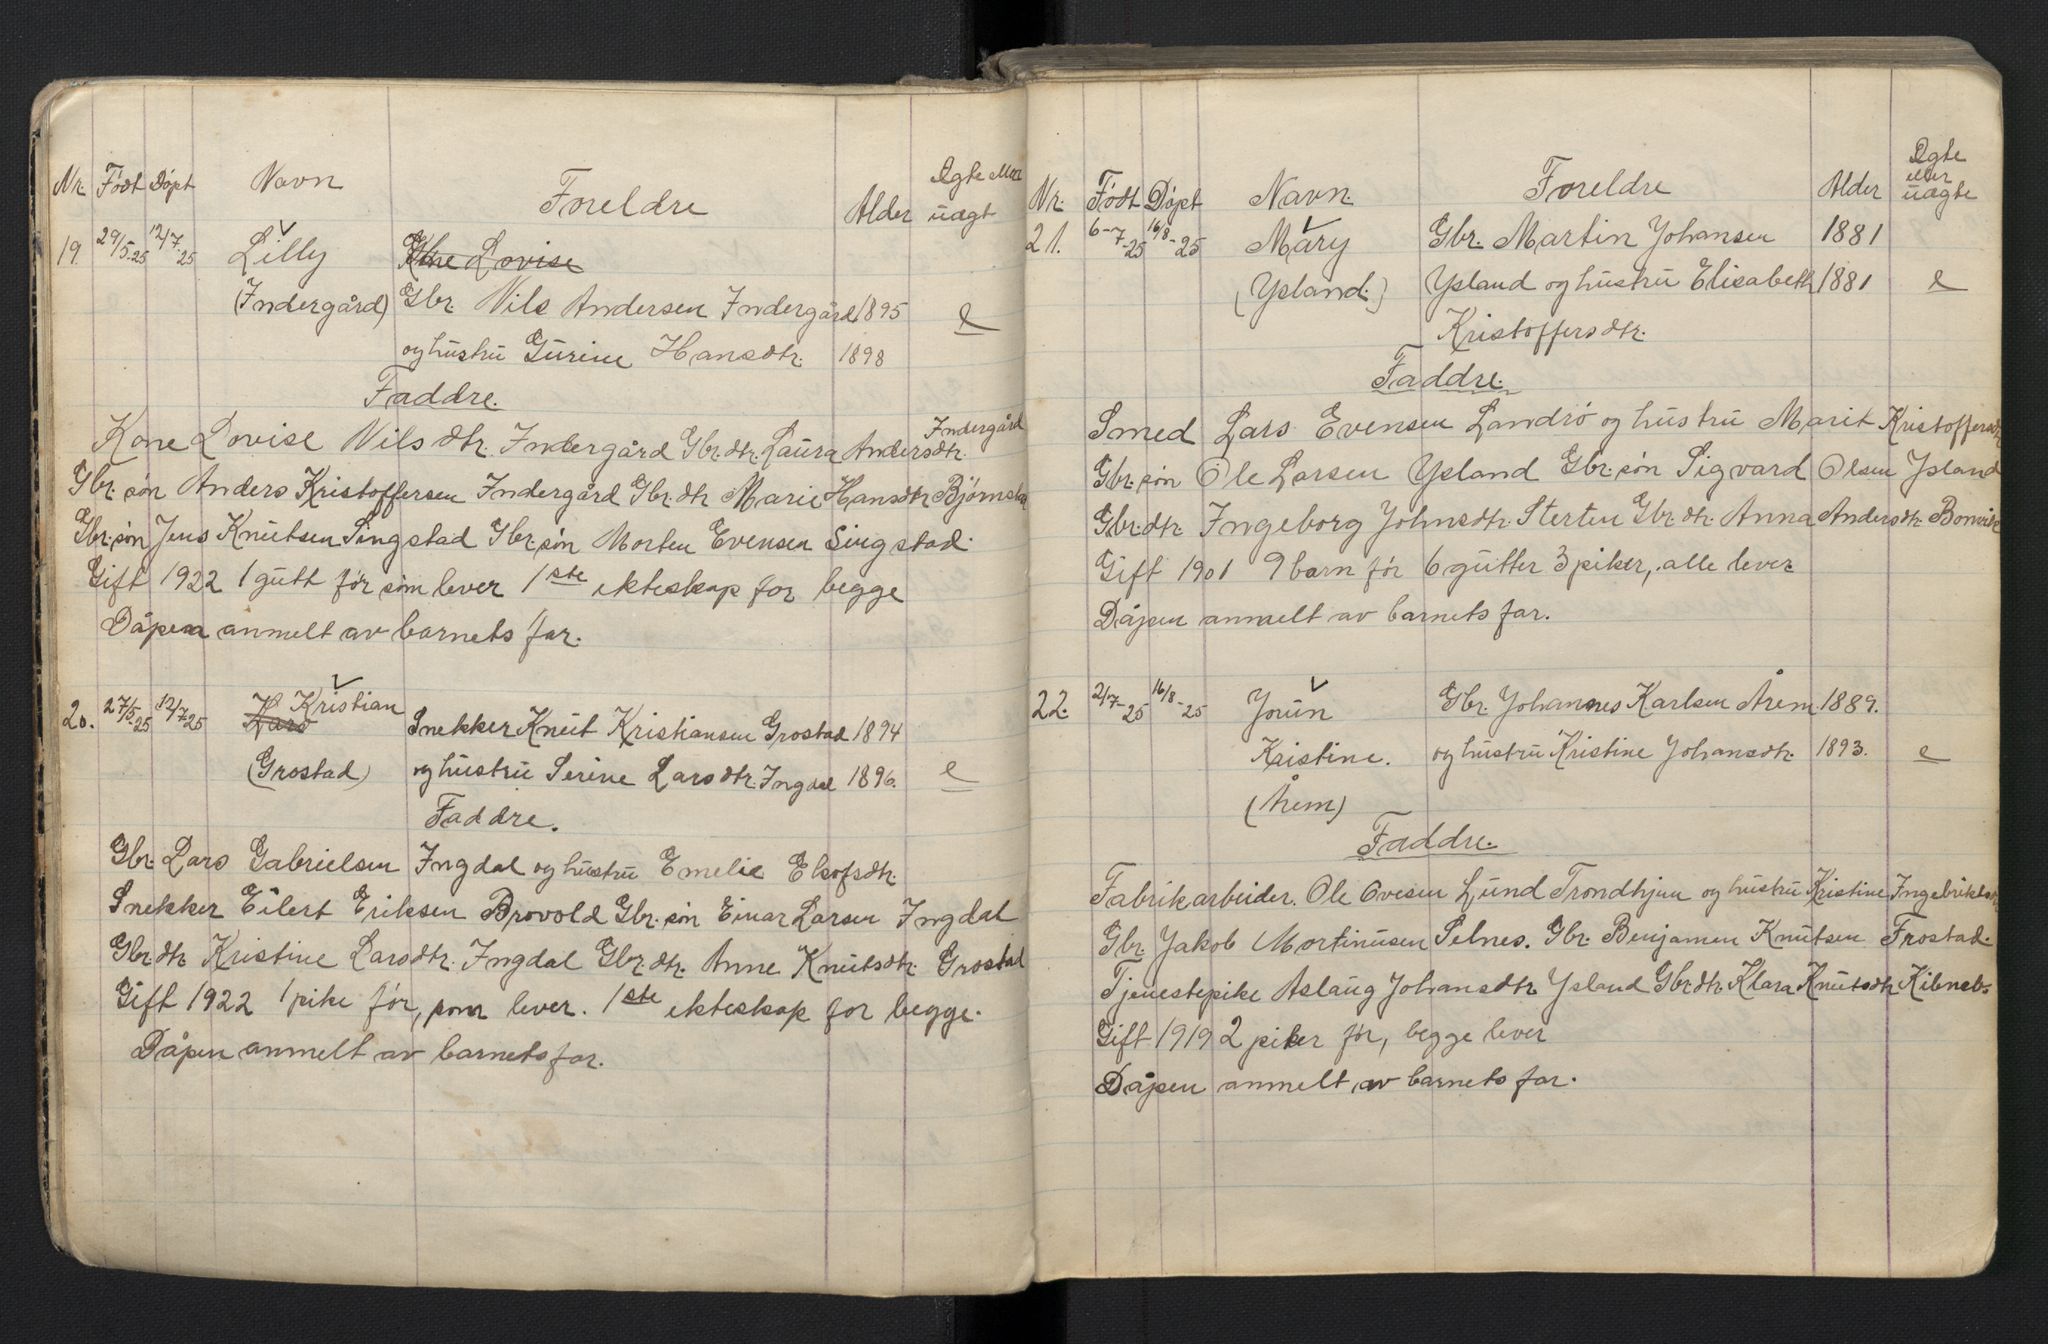 Nr. Født Døpt Navn Foreldre Alder Ægte eller uægt
19. 29/5-25 12/7-25 Lilly Kone Lovise
(Indergård) Gbr. Nils Andersen Indergård 1895 e
og hustru Gurine Hansdtr. 1898
Faddre.
Kone Lovise Nilsdtr. Indergård Gbr.dtr. Laura Andersdtr. Indergård
Gbr.søn Anders Kristoffersen Indergård Gbr.dtr Marie Hansdtr
Gbr.søn Jens Knutsen Singstad Gbr.søn Morten Evensen Singstad.
Gift 1922 1 gutt før som lever 1ste ekteskap for begge
Dåpen anmelt av barnets far.
20. 27/5-25 12/7-25 Lars Kristian Snekker Knut Kristiansen Grostad 1894
(Grostad) og hustru Serine Larsdtr. Ingdal 1896. e
Faddre.
Gbr. Lars Gabrielsen Ingdal og hustru Emelie
Snekker Eilert Eriksen Brovold Gbr.søn Einar Larsen Ingdal
Gbr.dtr Kristine Larsdtr. Ingdal Gbr.dtr. Anne Knutsdtr. Grostad
Gift 1922 1 pike før, som lever. 1ste ekteskap for begge.
Dåpen anmelt av barnets far.
Nr. Født Døpt Navn. Foreldre Alder Ægte eller uægte
21. 6-7-25 16/8-25 Mary Gbr. Martin Johansen 1881
(Ysland.) Ysland og hustru Elisabeth 1881 e
Kristoffersdtr.
Faddre.
Smed Lars Evensen Landrø og hustru Marit Kristoffersdtr
Gbr.søn Ole Larsen Ysland Gbr.søn Sigvard Olsen Ysland
Gbr.dtr. Ingeborg Johnsdtr. Sterten Gbr.dtr. Anna Andersdtr. Bonvik
Gift 1901 9 barn før 6 gutter 3 piker, alle lever
Dåpen anmelt av barnets far.
22. 2/7-25 16/8-25 Jorun Gbr. Johannes Karlsen Årem 1889.
Kristine. og hustru Kristine Johansdtr. 1893. e
(Årem)
Faddre.
Fabrikarbeider. Ole Ovesen Lund Trondhjem og hustru Kristine
Gbr. Jakob Mortinusen Selnes. Gbr. Benjamen Knutsen Frostad.
Tjenestepike Aslaug Johansdtr Ysland Gbr.dtr. Klara Knutsdtr
Gift 1919 2 piker før, begge lever
Dåpen anmelt av barnets far.